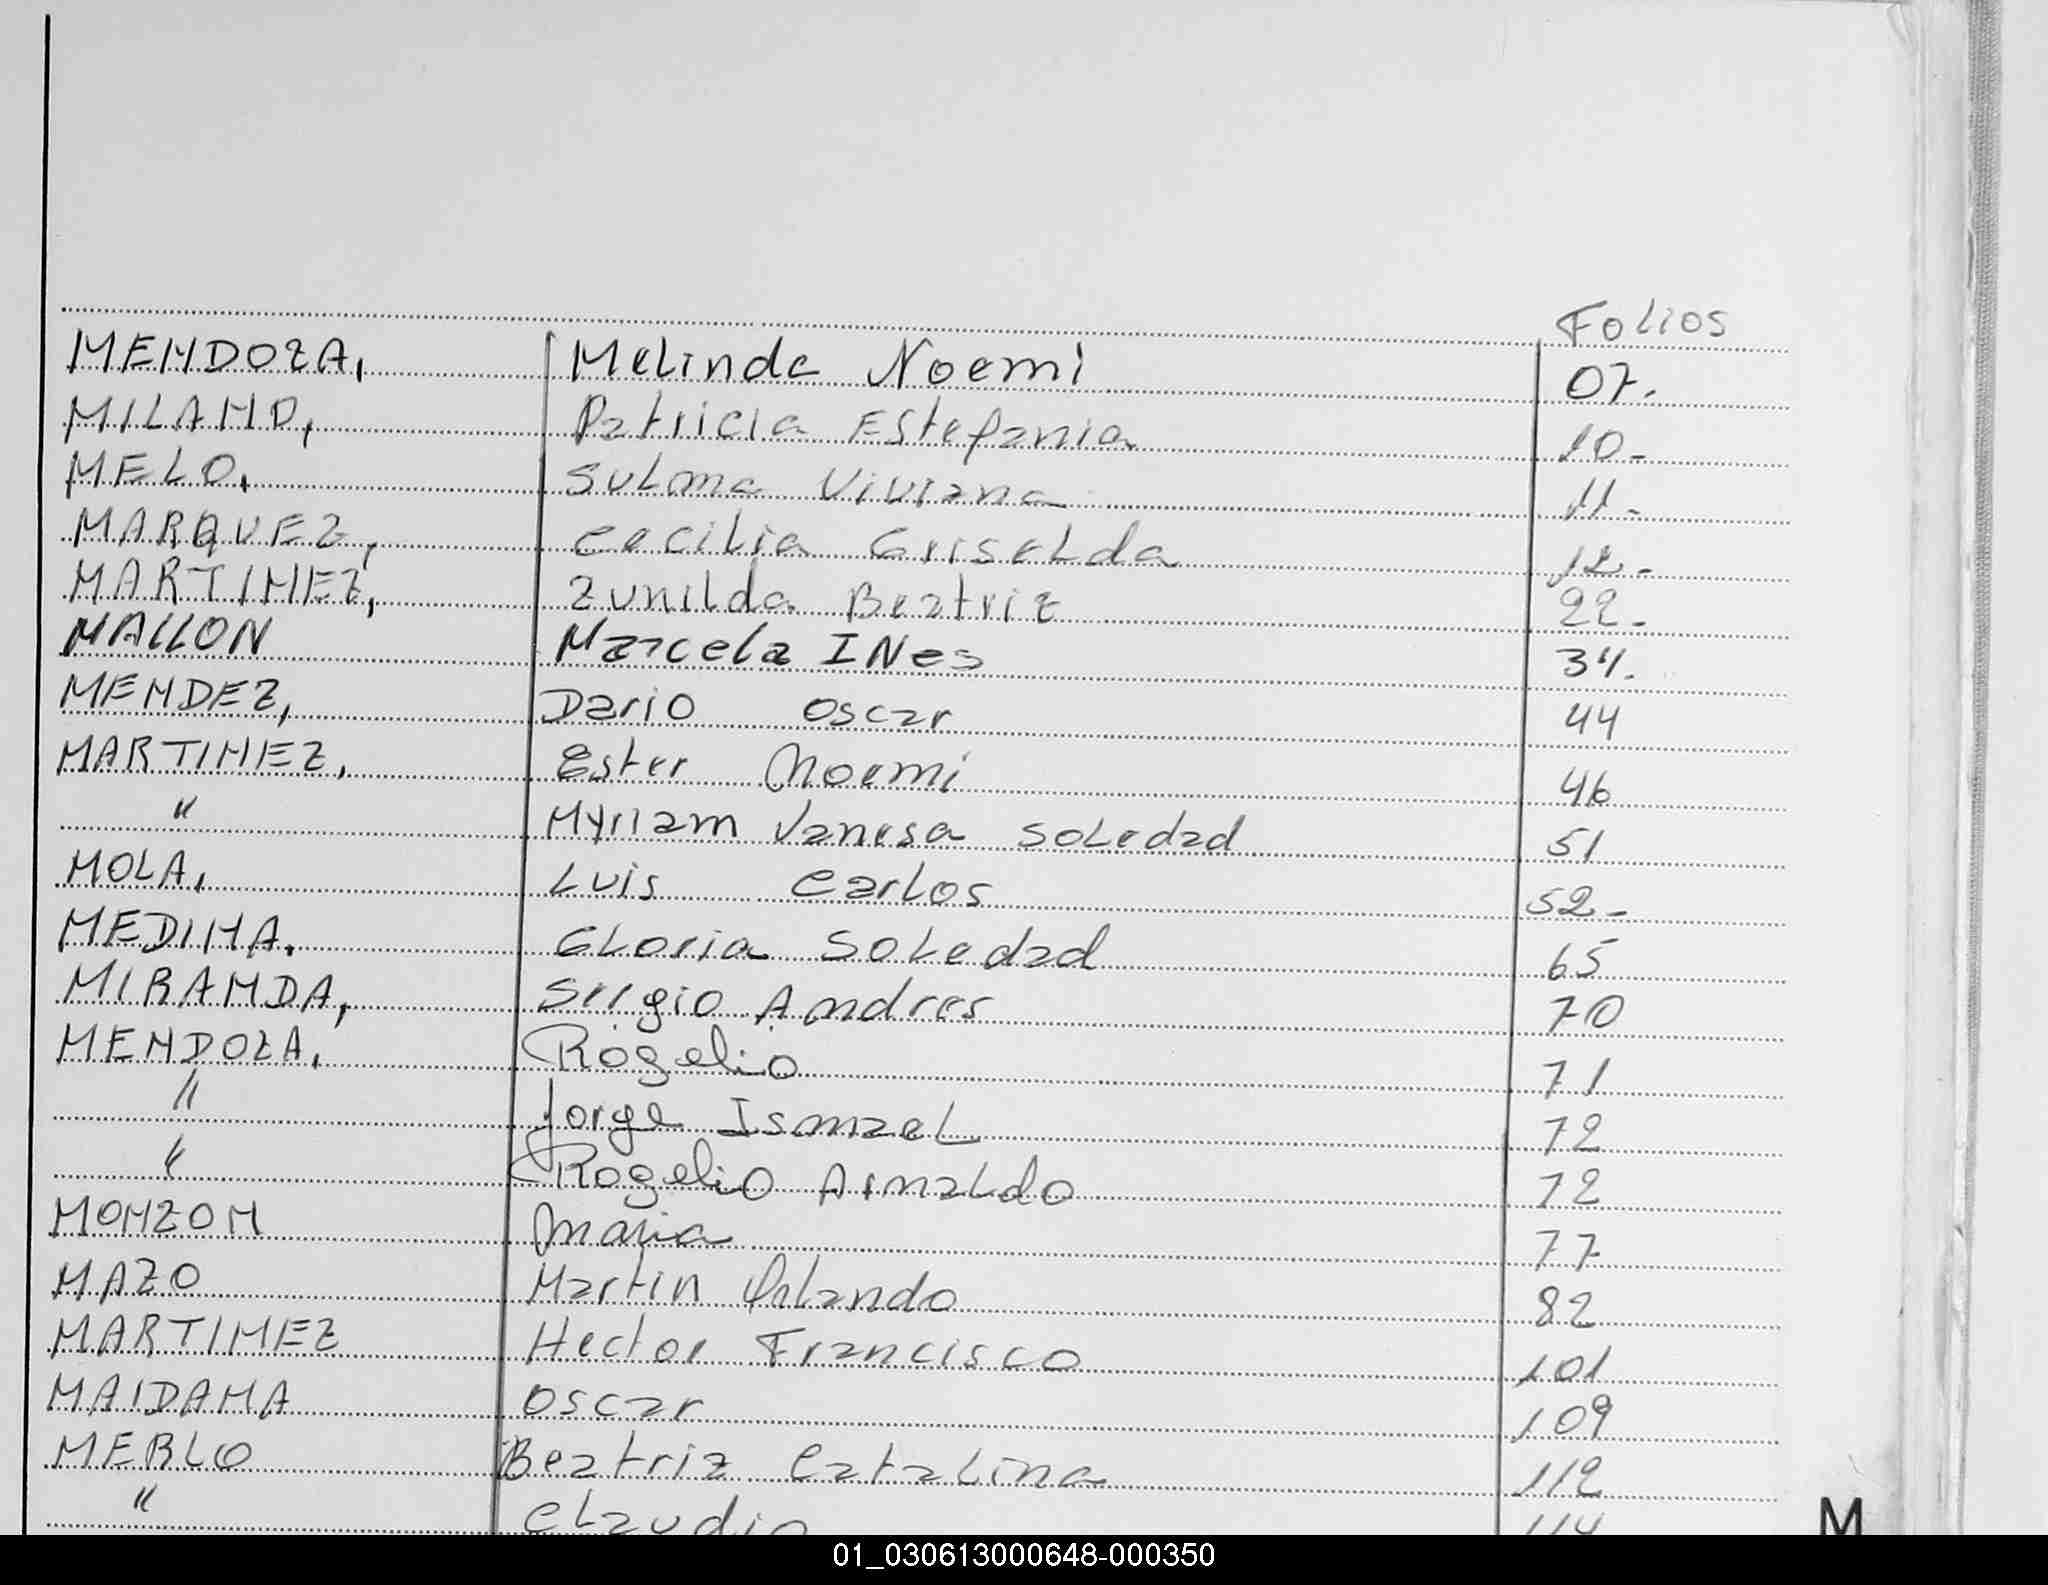 Folios
MENDOZA, Melinda Noemi 07.
MILANO, Patricia Estefania 10-
MELO, Sulma Viviana 11-
MARQUEZ, Cecilia Griselda 12-
MARTINEZ, Zunilda Beatriz 22-
MALLON Marcela INes 34.
MENDEZ, Dario Oscar 44
MARTINEZ, Ester Noemi 46
" Myriam Vanesa Soledad 51
MOLA, Luis Carlos 52-
MEDINA, Gloria Soledad 65
MIRANDA, Sergio Andres 70
MENDOZA, Rogelio 71
" Jorge Ismael 72
" Rogelio Arnaldo 72
MONZON Maria 77
MAZO Martin Orlando 82
MARTINEZ Hector Francisco 101
MAIDANA Oscar 109
MERLO Beatriz Catalina 112
" Claudio 114
M
01_030613000648-000350